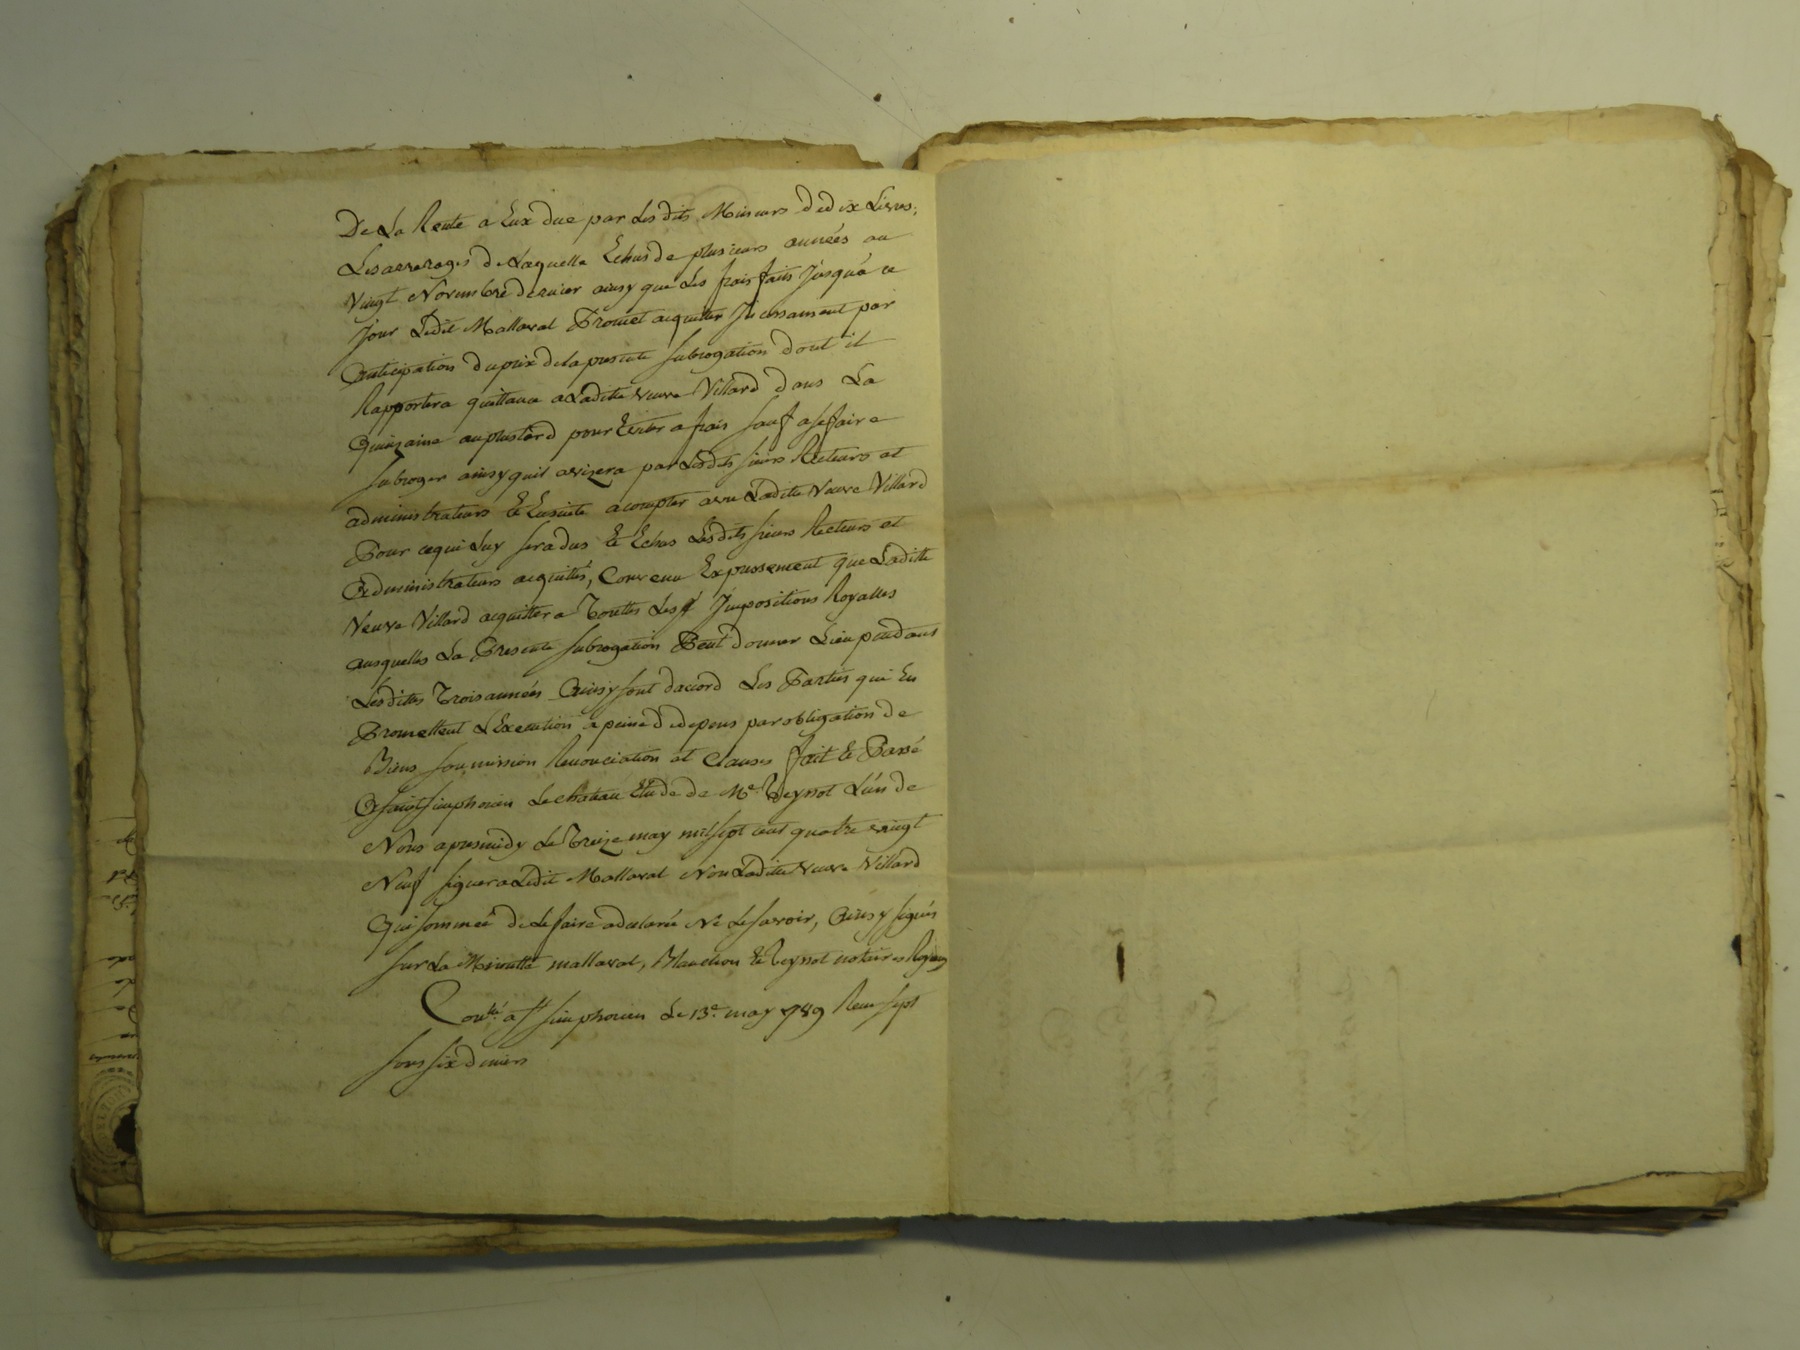 De La Rente a Eux due par Les dits Mineurs de dix Livres;
Les arrerages de Laquelle Echus de plusieurs années au
vingt Novembre dernier ainsy que Les frais faits Jusqu'a ce
Jour Ledit Mallaval Promet acquitter Incessament par
anticipation du prix de la presente subrogation dont il
Rapportera quittance a Laditte veuve Villard dans La
Quinzaine au plus tard pour Eviter a frais sauf a se faire
subroger ainsy quil avizera par Lesdits sieurs Recteurs et
administrateurs Et Ensuite a compter avec Laditte Veuve Villard
Pour ce qui Luy sera dus Et Echus Lesdits sieurs Recteurs et
Administrateurs acquittés, Convenu Expressement que Laditte
Veuve Villard acquittera Touttes Les Impositions Royalles
ausquelles La Presente subrogation Peut donner Lieu pendant
Lesdittes Trois années Ainsy sont daccord Les Parties qui En
Promettent L'Execution a peine de depens par obligation de
Biens soumission Renonciation et Clauses fait Et Passé
A saint simphorien Le chateau Etude de Me Teynot L'un de
Nous apres midy Le Treize may mil sept cent quatre vingt
Neuf signera Ledit Mallaval Non Laditte veuve Villard
Qui sommée de Le faire a declaré Ne Le savoir, Ainsy signés
sur La Minutte mallaval, Blanchon Et Teynot notaires Royaux
Conllé a St simphorien Le 13e may 789 Reçu sept
sous six deniers